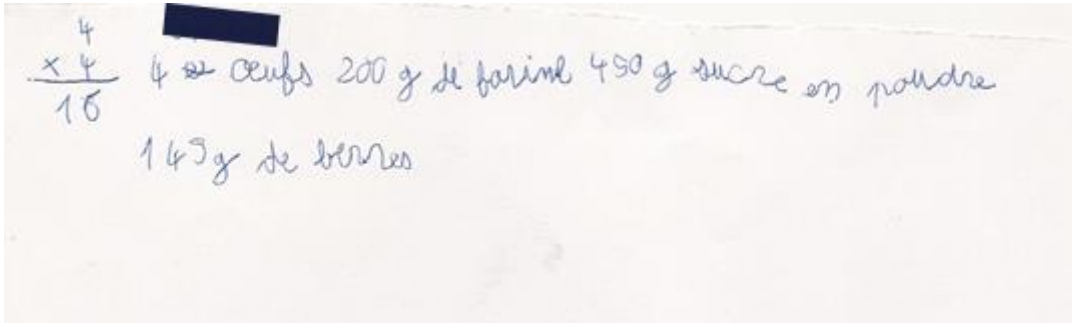 4
× 4 4 œufs 200 g de farine 450 g sucre en poudre
16
149g de berres